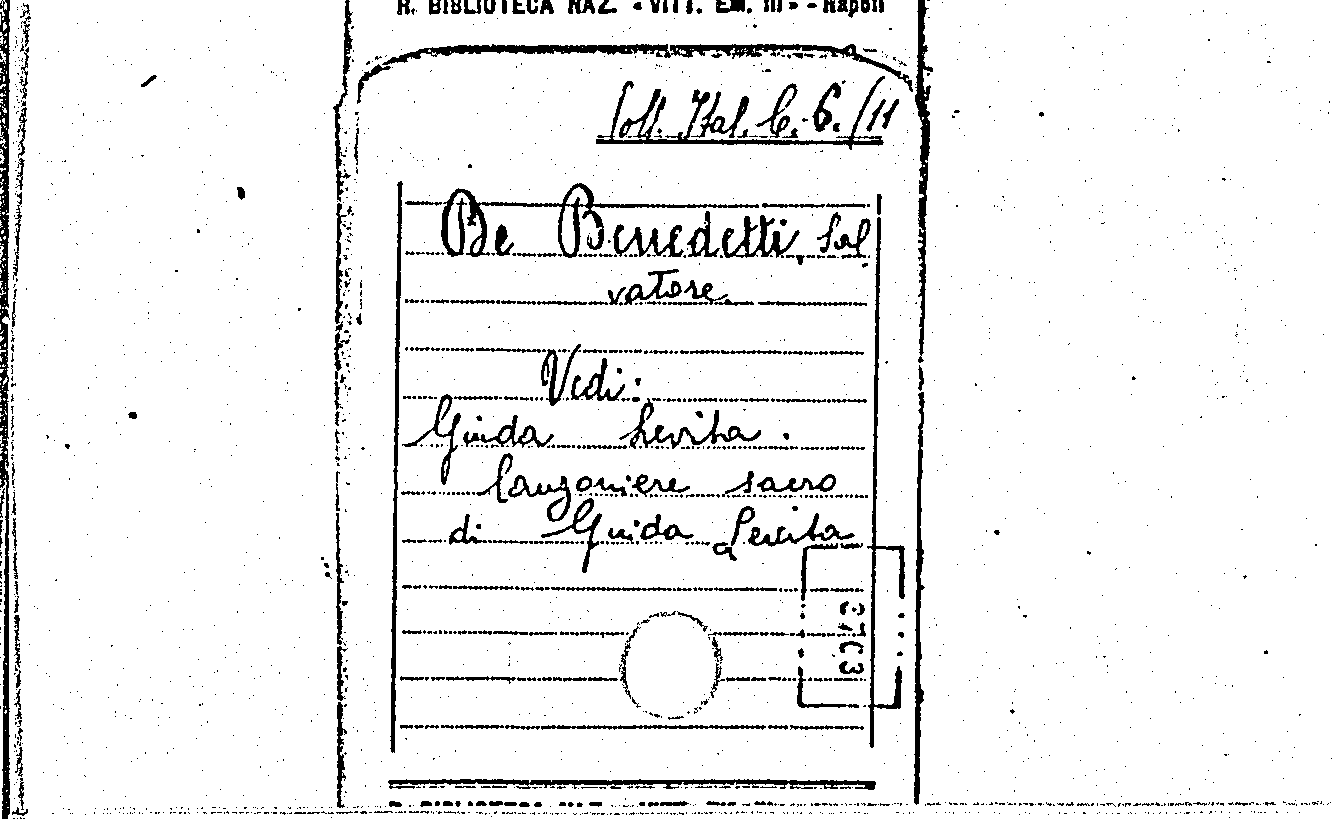 R. BIBLIOTECA NAZ. - VITT. EM. III - - Napoli
Coll. Ital. C. 6. /11
De Benedetti, Sal
vatore.
Vedi:
Giuda Levita.
Canzoniere sacro
di Giuda Levita
3703
R. BIBLIOTECA NAZ.